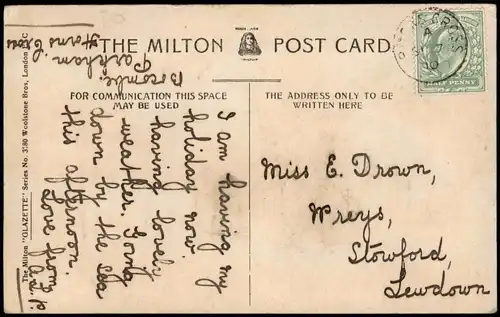 THE MILTON POST CARD
FOR COMMUNICATION THIS SPACE
MAY BE USED
THE ADDRESS ONLY TO BE
WRITTEN HERE
HALFPENNY
The Milton "GLAZETTE" Series No. 3580 Woolstone Bros, London
Horns Cross
Parkham
I am having my
holiday now
having lovely
weather. Going
down by the sea
this afternoon.
Love from
Miss E. Drown,
Wreys,
Stowford,
Lewdown